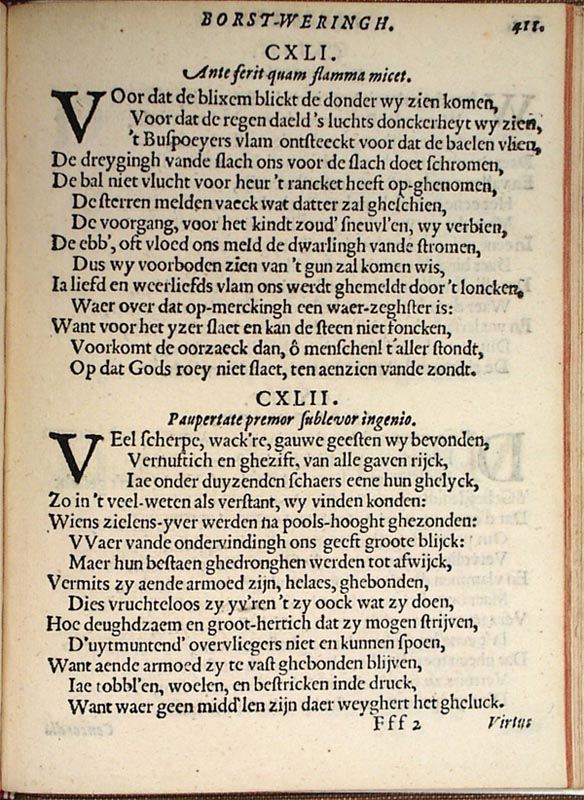 BORST-WERINGH. 411.
CXLI.
Ante ferit quam flamma micet.
VOor dat de blixem blickt de donder wy zien komen,
Voor dat de regen daeld 's luchts donckerheyt wy zien,
't Buspoeyers vlam ontsteeckt voor dat de baelen vlien,
De dreygingh vande slach ons voor de slach doet schromen,
De bal niet vlucht voor heur 't rancket heeft op-ghenomen,
De sterren melden vaeck wat datter zal gheschien,
De voorgang, voor het kindt zoud' sneuvl'en, wy verbien,
De ebb', oft vloed ons meld de dwarlingh vande stromen,
Dus wy voorboden zien van 't gun zal komen wis,
Ia liefd en weerliefds vlam ons werdt ghemeldt door 't loncken,
Waer over dat op-merckingh een waer-zeghster is:
Want voor het yzer slaet en kan de steen niet foncken,
Voorkomt de oorzaeck dan, ô menschen! t'aller stondt,
Op dat Gods roey niet slaet, ten aenzien vande zondt.
CXLII.
Paupertate premor sublevor ingenio.
VEel scherpe, wack're, gauwe geesten wy bevonden,
Vernuftich en ghezift, van alle gaven rijck,
Iae onder duyzenden schaers eene hun ghelyck,
Zo in 't veel-weten als verstant, wy vinden konden:
Wiens zielens-yver werden na pools-hooght ghezonden:
VVaer vande ondervindingh ons geeft groote blijck:
Maer hun bestaen ghedronghen werden tot afwijck,
Vermits zy aende armoed zijn, helaes, ghebonden,
Dies vruchteloos zy yv'ren 't zy oock wat zy doen,
Hoe deughdzaem en groot-hertich dat zy mogen strijven,
D'uytmuntend' overvliegers niet en kunnen spoen,
Want aende armoed zy te vast ghebonden blijven,
Iae tobbl'en, woelen, en bestricken inde druck,
Want waer geen midd'len zijn daer weyghert het gheluck.
Fff 2 Virtus